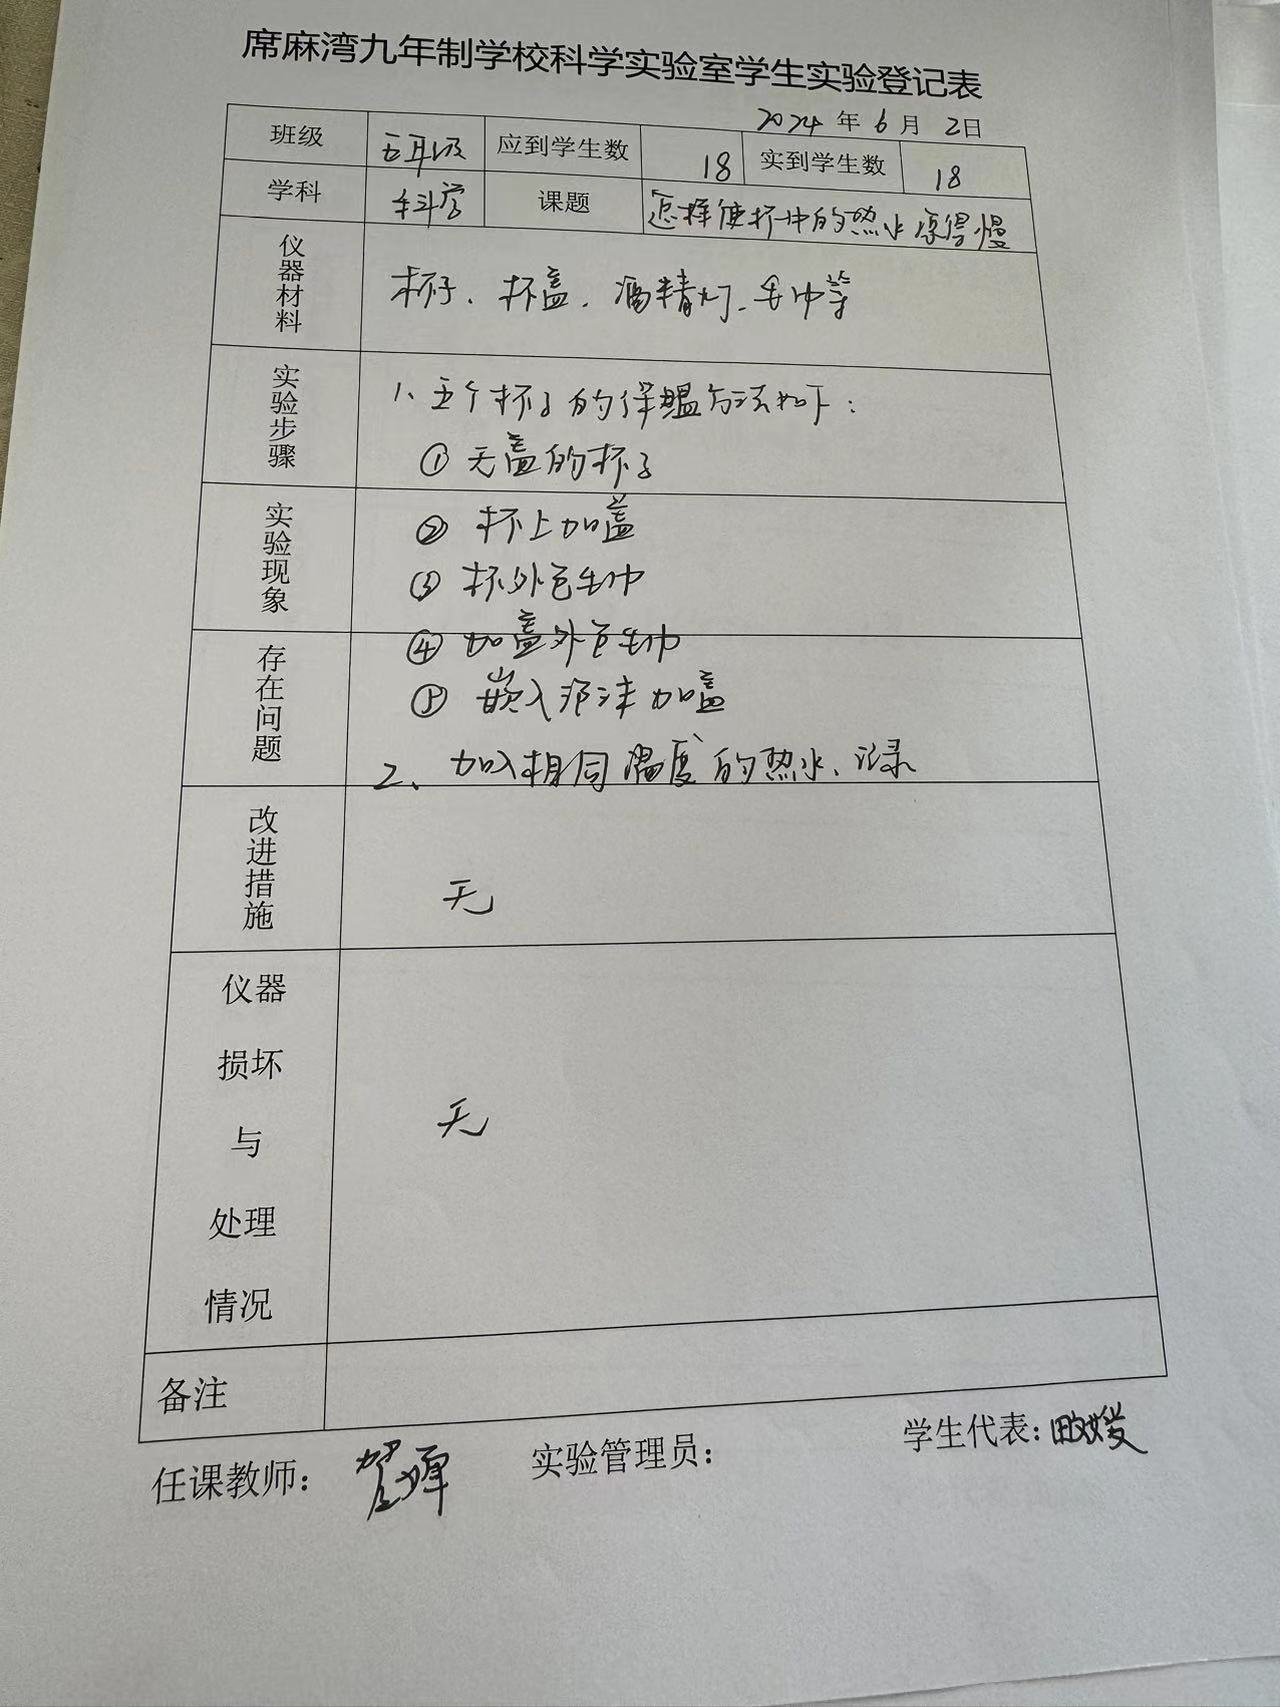 席麻湾九年制学校科学实验室学生实验登记表
2024年6月2日
班级 五年级 应到学生数 18 实到学生数 18
学科 科学 课题 怎样使杯中的热水凉得慢
仪器材料 杯子、杯盖、酒精灯、毛巾等
实验步骤 1、五个杯子的保温方法如下：
①无盖的杯子
实验现象 ②杯上加盖
③杯外包毛巾
存在问题 ④加盖外包毛巾
⑤嵌入泡沫加盖
2、加入相同温度的热水、记录
改进措施 无
仪器
损坏
与 无
处理
情况
备注
任课教师： 实验管理员： 学生代表：